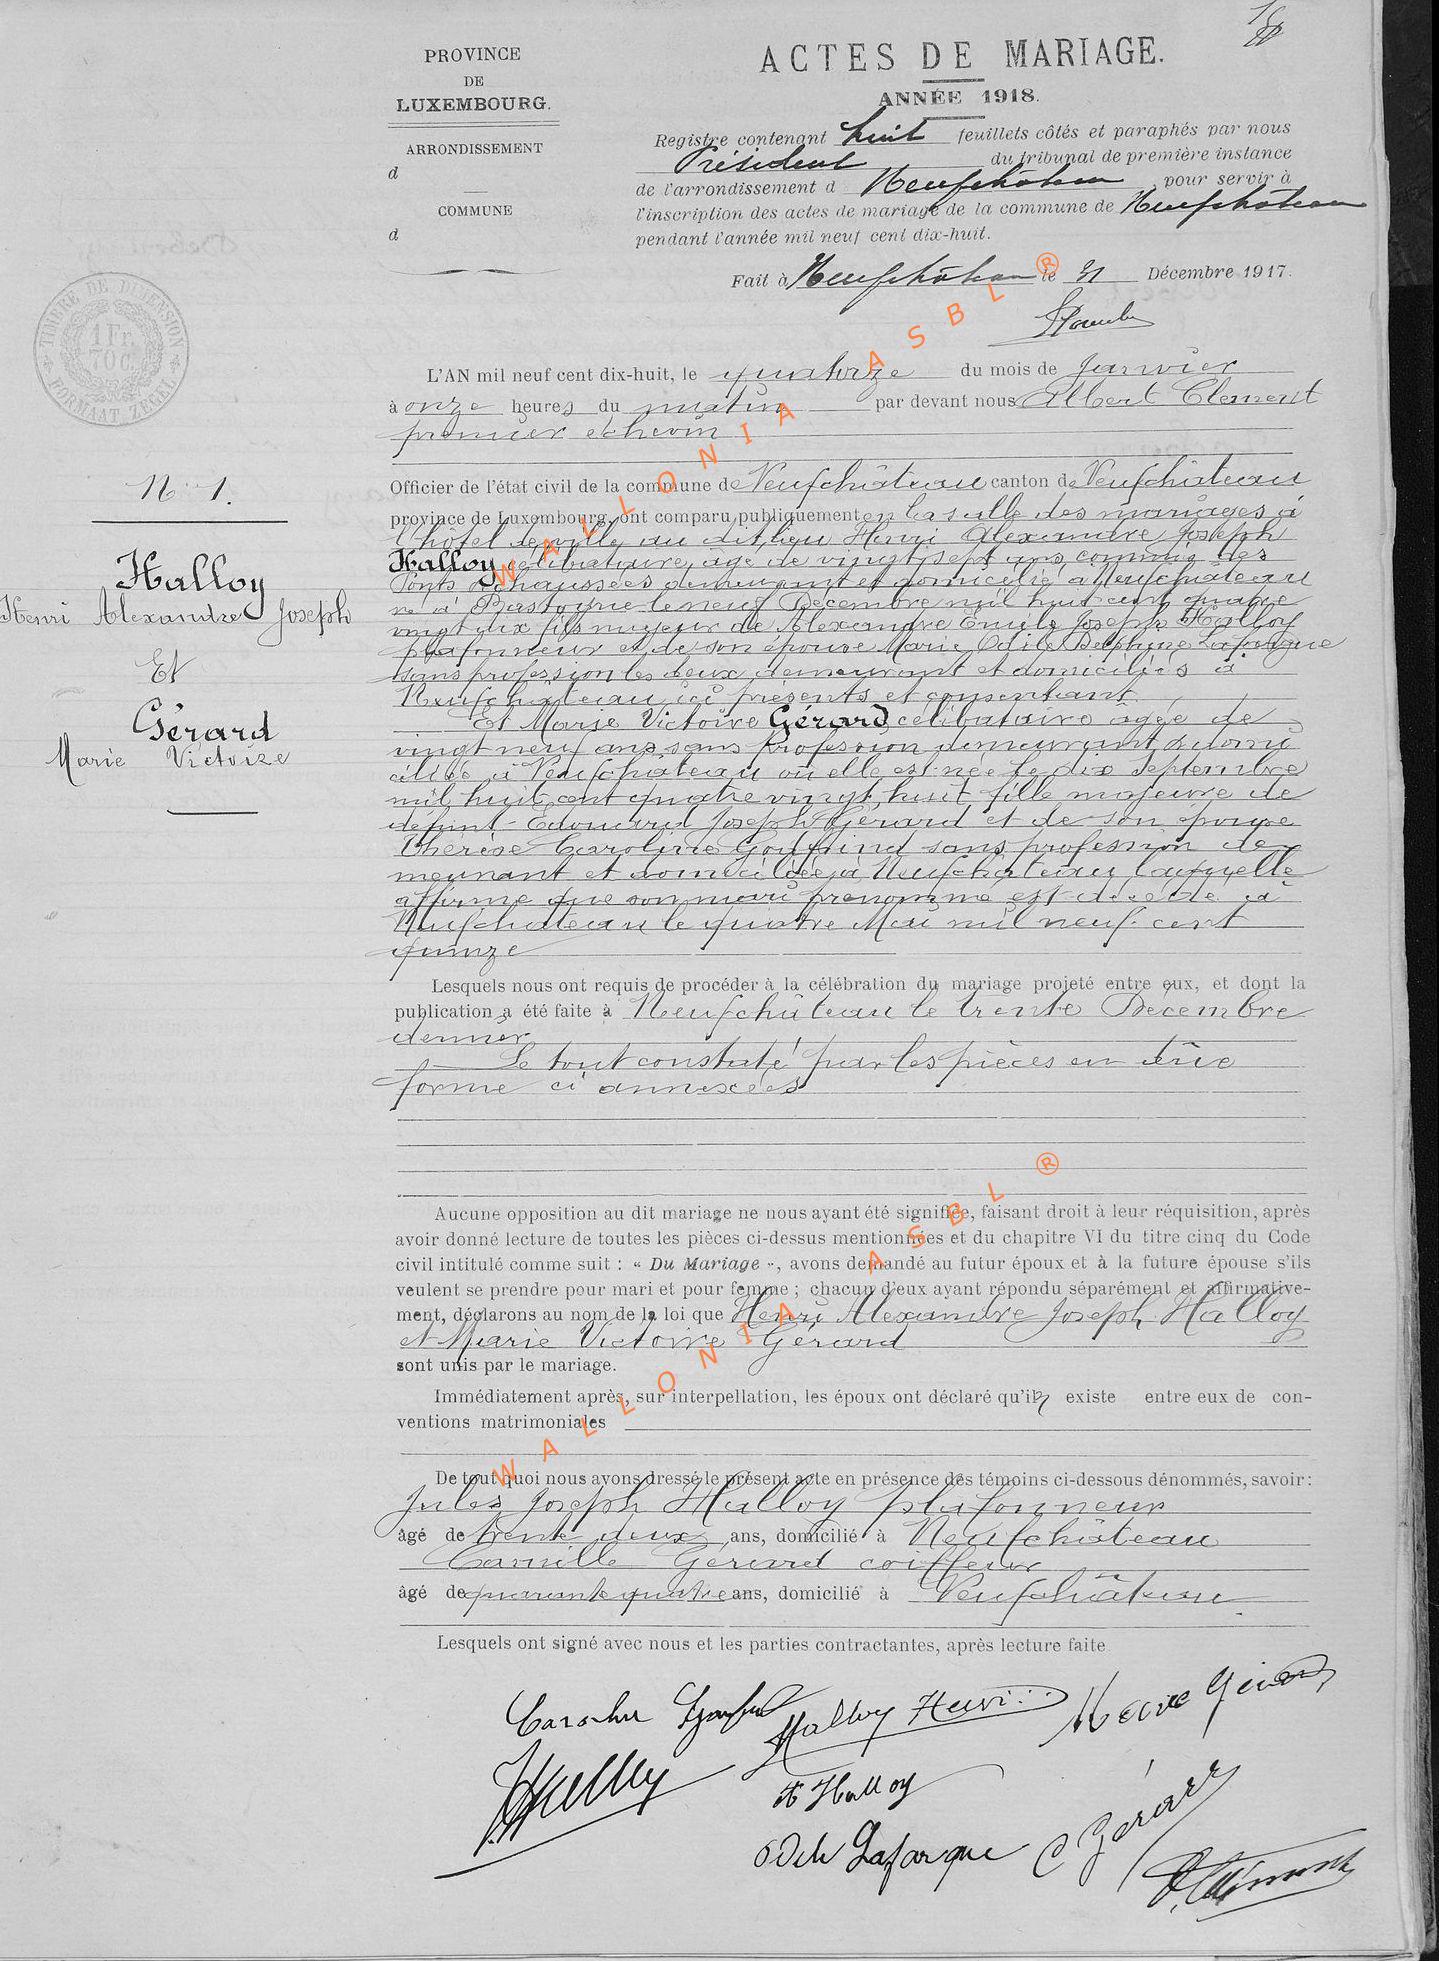 PROVINCE
DE
LUXEMBOURG.
ARRONDISSEMENT
d
COMMUNE
d
ACTES DE MARIAGE.
ANNÉE 1918.
Registre contenant huit feuillets côtés et paraphés par nous
Président du tribunal de première instance
de l'arrondissement d Neufchâteau pour servir à
l'inscription des actes de mariage de la commune de Neufchâteau
pendant l'année mil neuf cent dix-huit.
Fait à Neufchâteau le 31 Décembre 1917.
TIMBRE DE DIMENSION
1 Fr.
70 C.
FORMAAT ZEGEL
L'AN mil neuf cent dix-huit, le quatorze du mois de Janvier
à onze heures du matin par devant nous Albert Clement
premier échevin
Officier de l'état civil de la commune de Neufchâteau canton de Neufchâteau
province de Luxembourg, ont comparu publiquement en la salle des mariages à
l'hôtel de ville au dit lieu Henri Alexandre Joseph
Halloy célibataire, âgé de vingt sept ans, commis des
Ponts & Chaussées demeurant et domicilié à Neufchâteau
né à Bastogne le neuf Décembre mil huit cent quatre
vingt dix fils majeur de Alexandre Emile Joseph Halloy
plafonneur et de son épouse Marie Odile Delphine Lafargue
sans profession les deux demeurant et domiciliés à
Neufchâteau ici présents et consentant
Et Marie Victoire Gérard, célibataire âgée de
vingt neuf ans sans profession demeurant & domi
ciliée à Neufchâteau où elle est née le dix Septembre
mil huit cent quatre vingt huit fille majeure de
défunt Edouard Joseph Gérard et de son épouse
Thérèse Caroline sans profession de
meurant et domiciliée à Neufchâteau laquelle
affirme que son mari prénommé est décédé à
Neufchâteau le quatre Mai mil neuf cent
quinze
Lesquels nous ont requis de procéder à la célébration du mariage projeté entre eux, et dont la
publication a été faite à Neufchâteau le trente Décembre
dernier
Le tout constaté par les pièces en due
forme ci annexées
Aucune opposition au dit mariage ne nous ayant été signifiée, faisant droit à leur réquisition, après
avoir donné lecture de toutes les pièces ci-dessus mentionnées et du chapitre VI du titre cinq du Code
civil intitulé comme suit : « Du Mariage », avons demandé au futur époux et à la future épouse s'ils
veulent se prendre pour mari et pour femme ; chacun d'eux ayant répondu séparément et affirmative-
ment, déclarons au nom de la loi que Henri Alexandre Joseph Halloy
et Marie Victoire Gérard
sont unis par le mariage.
Immédiatement après, sur interpellation, les époux ont déclaré qu'il existe entre eux de con-
ventions matrimoniales
De tout quoi nous avons dressé le présent acte en présence des témoins ci-dessous dénommés, savoir :
Jules Joseph Halloy plafonneur
âgé de trente deux ans, domicilié à Neufchâteau
Camille Gérard coiffeur
âgé de quarante quatre ans, domicilié à Neufchâteau
Lesquels ont signé avec nous et les parties contractantes, après lecture faite
Halloy Henri Marie Gérard
Halloy
Halloy
Odile Lafargue C Gérard
A. Clément
N° 1.
Halloy
Henri Alexandre Joseph
Et
Gérard
Marie Victoire
WALLONIA ASBL ®
WALLONIA ASBL ®